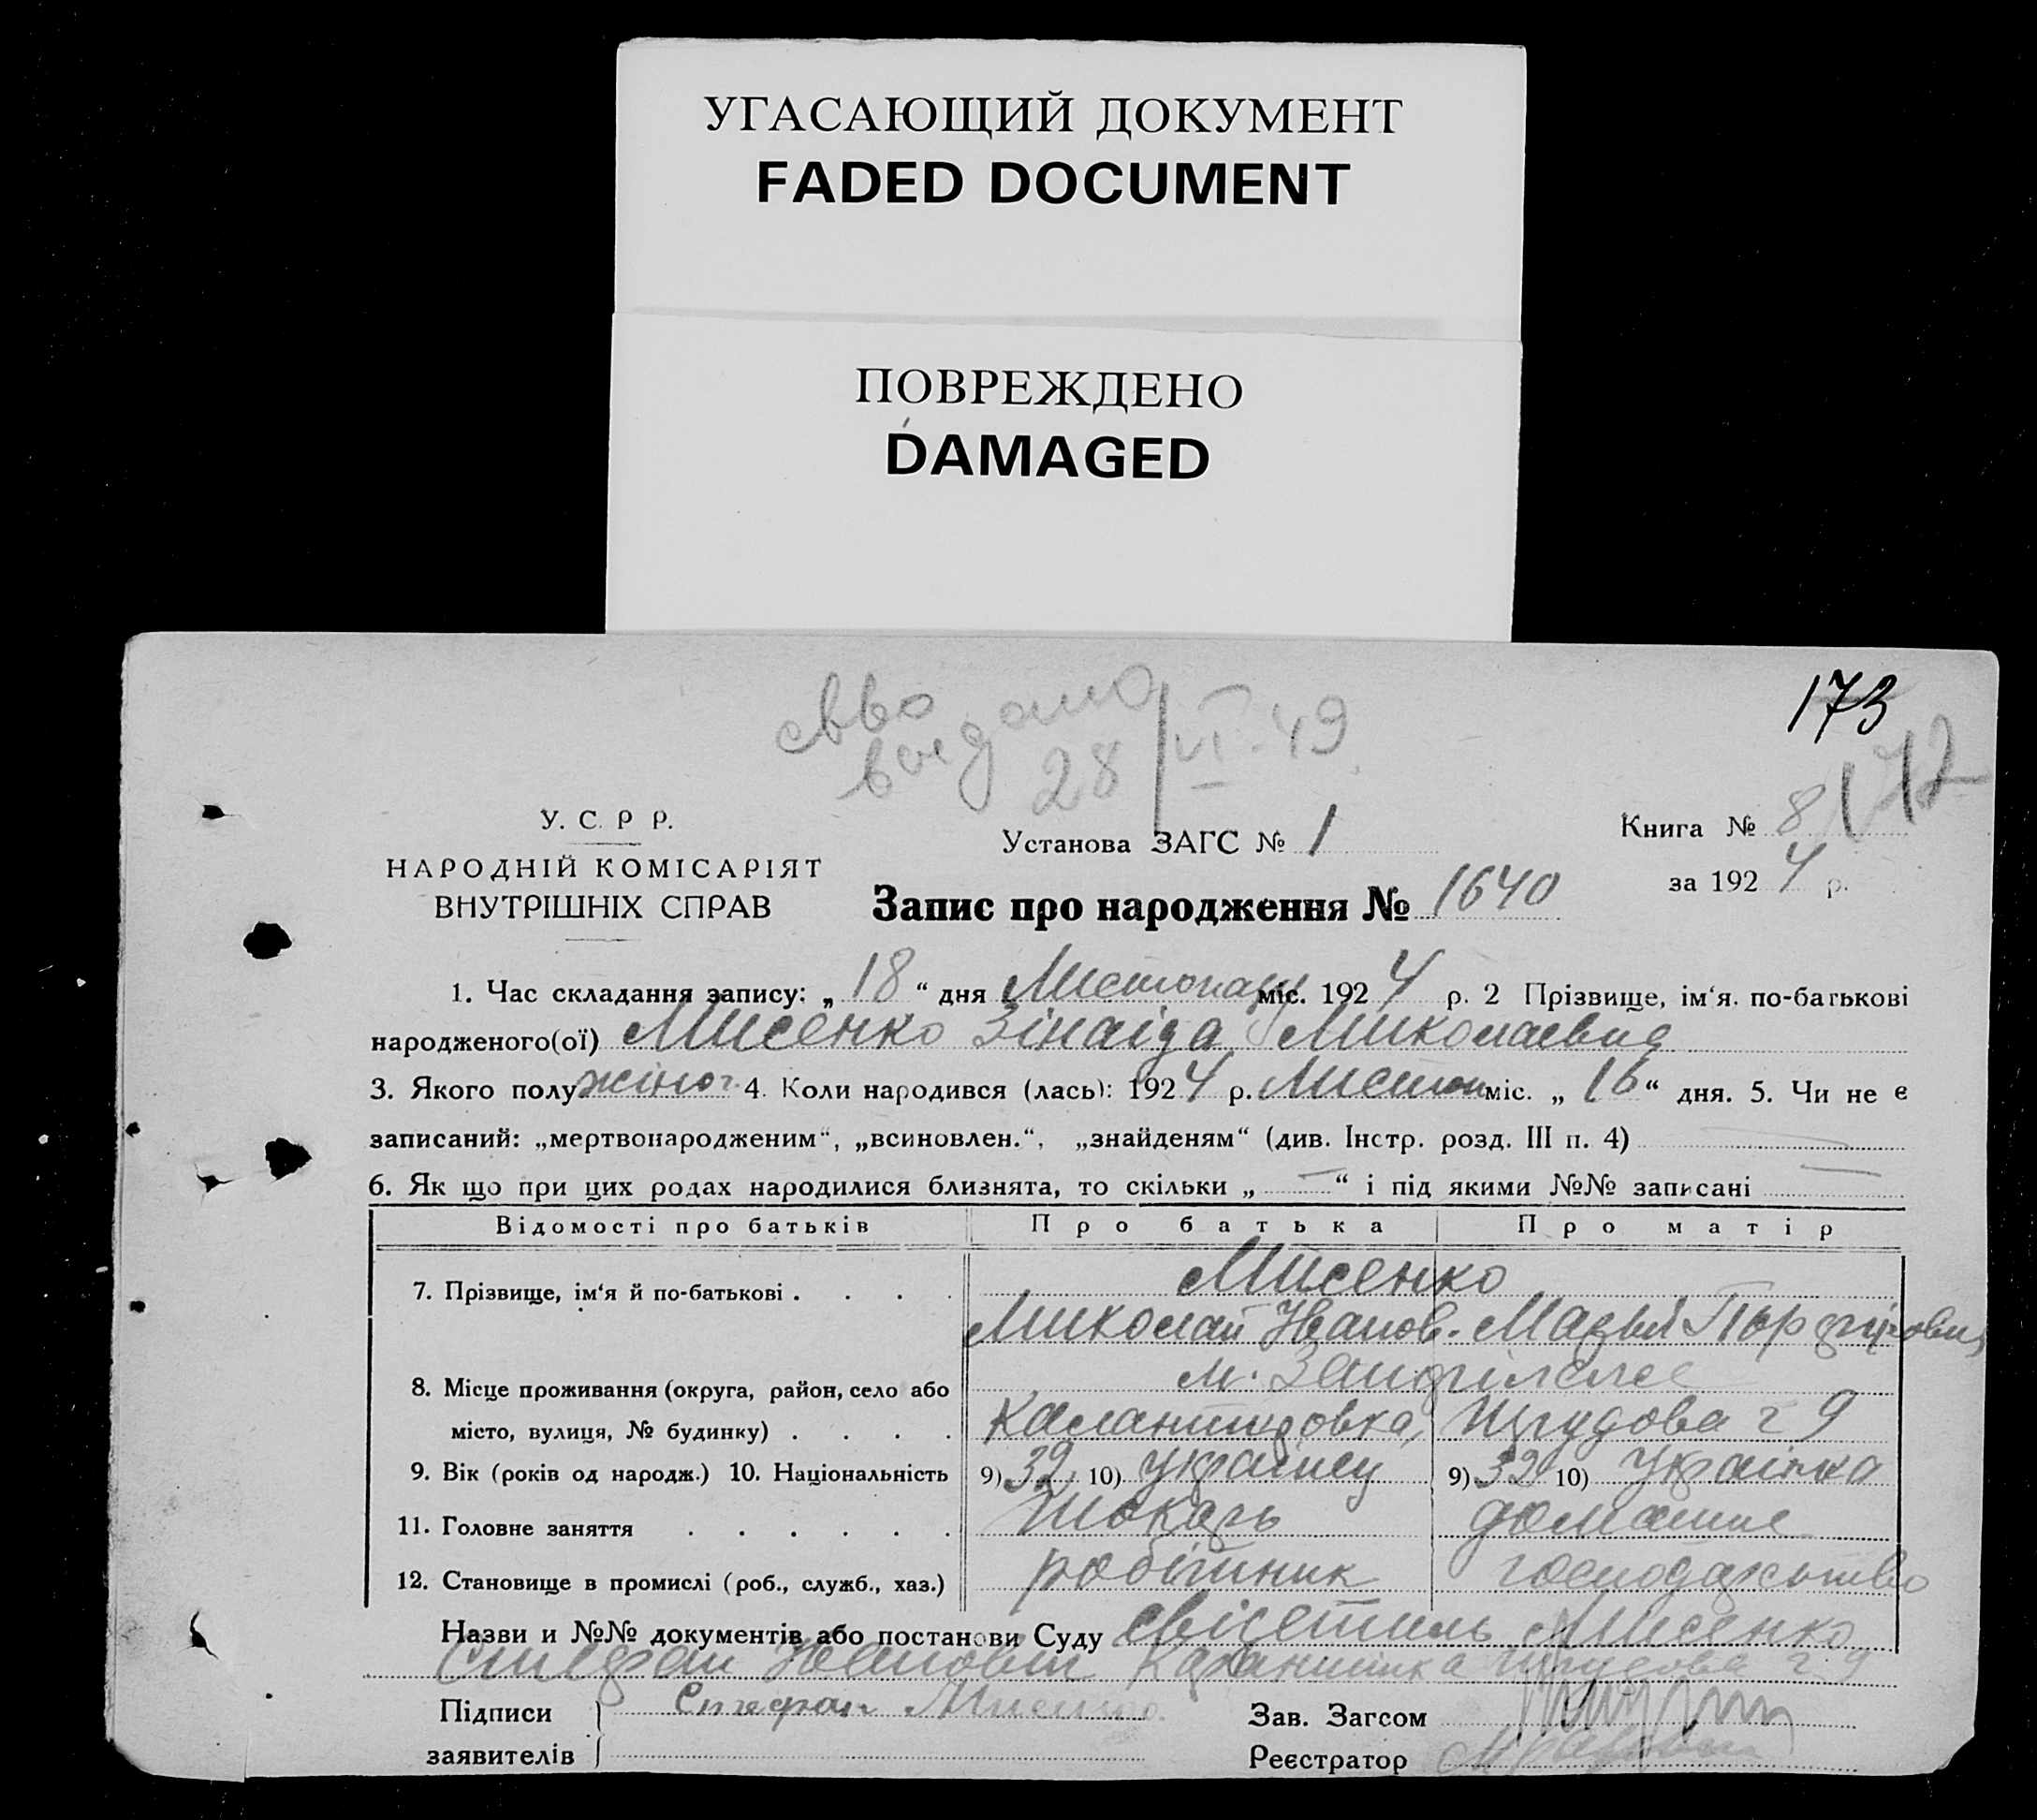 УГАСАЮЩИЙ ДОКУМЕНТ
FADED DOCUMENT
ПОВРЕЖДЕНО
DAMAGED
173
172
28/VI-49.
У. С. Р. Р.
НАРОДНІЙ КОМІСАРІЯТ
ВНУТРІШНІХ СПРАВ
Установа ЗАГС № 1
Книга № 8
за 1924 р.
Запис про народження № 1640
1. Час складання запису: „18“ дня Листопад міс. 1924 р. 2 Прізвище, ім‘я. по-батькові
народженого(ої) Мисенко Зінаіда Миколаевна
3. Якого полу жіноч. 4. Коли народився (лась): 1924 р. Листоп міс. „16“ дня. 5. Чи не є
записаний: „мертвонародженим“, „всиновлен.“, „знайденям“ (див. Інстр. розд. III п. 4)
6. Як що при цих родах народилися близнята, то скільки „—“ і під якими №№ записані —
Відомості про батьків Про батька Про матір
7. Прізвище, ім‘я й по-батькові . . . . Мисенко
Миколай Иванов.
8. Місце проживання (округа, район, село або м.
місто, вулиця, № будинку) . . . . Калантировка, Трудова 9
9. Вік (років од народж.) 10. Національність 9) 32 10) Украінец 9) 32 10) Украінка
11. Головне заняття . . . . . . Токарь домашне
12. Становище в промислі (роб., служб., хаз.) робітник господарьство
Назви и №№ документів або постанови Суду Мисенко
Стефан Иванович Трудова 9
Підписи Стефан Мисенко
заявителів
Зав. Загсом
Реєстратор